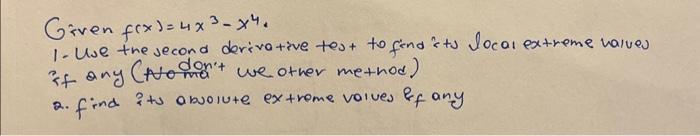 Given f(x) = 4x³ - x⁴.
1- Use the second derivative test to find its local extreme values
if any (don't use other method)
2. find its absolute extreme values if any